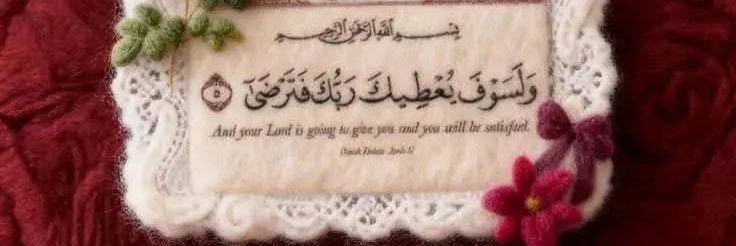 بسم الله الرحمن الرحيم
وَلَسَوْفَ يُعْطِيكَ رَبُّكَ فَتَرْضَىٰ ٥
And your Lord is going to give you and you will be satisfied.